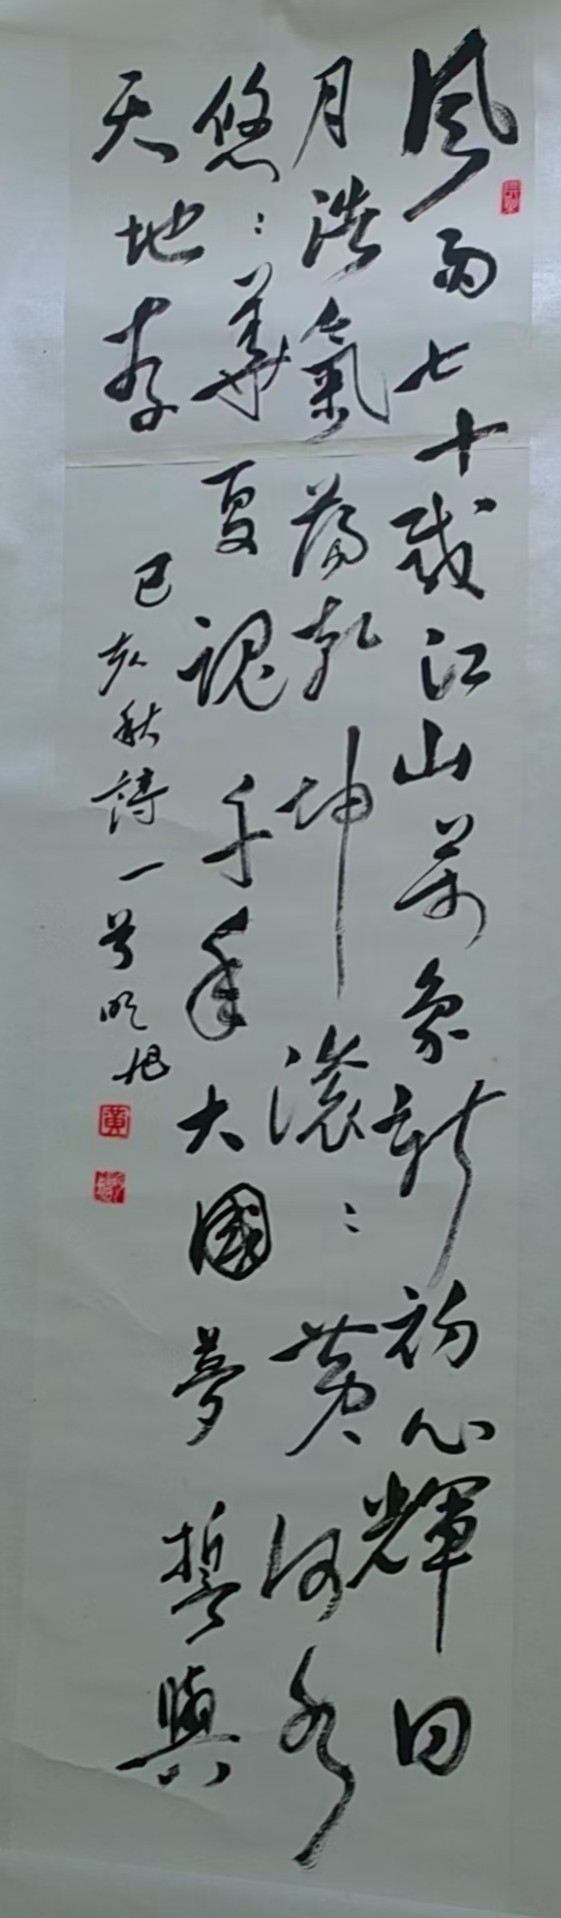 風雨七十載江山萬象新初心輝日
月浩氣蕩乾坤滾：黃河水
悠：華夏魂千年大國夢誓與
天地存
己亥秋詩一首
黃